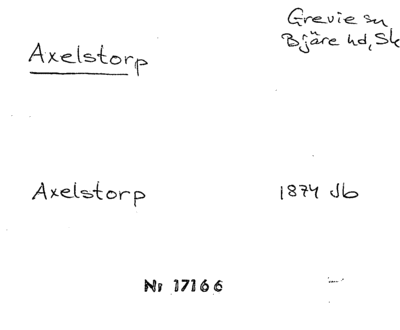 Axelstorp
Grevie sn
Bjäre hd, Sk
Axelstorp
1874 Jb
Nr 17166